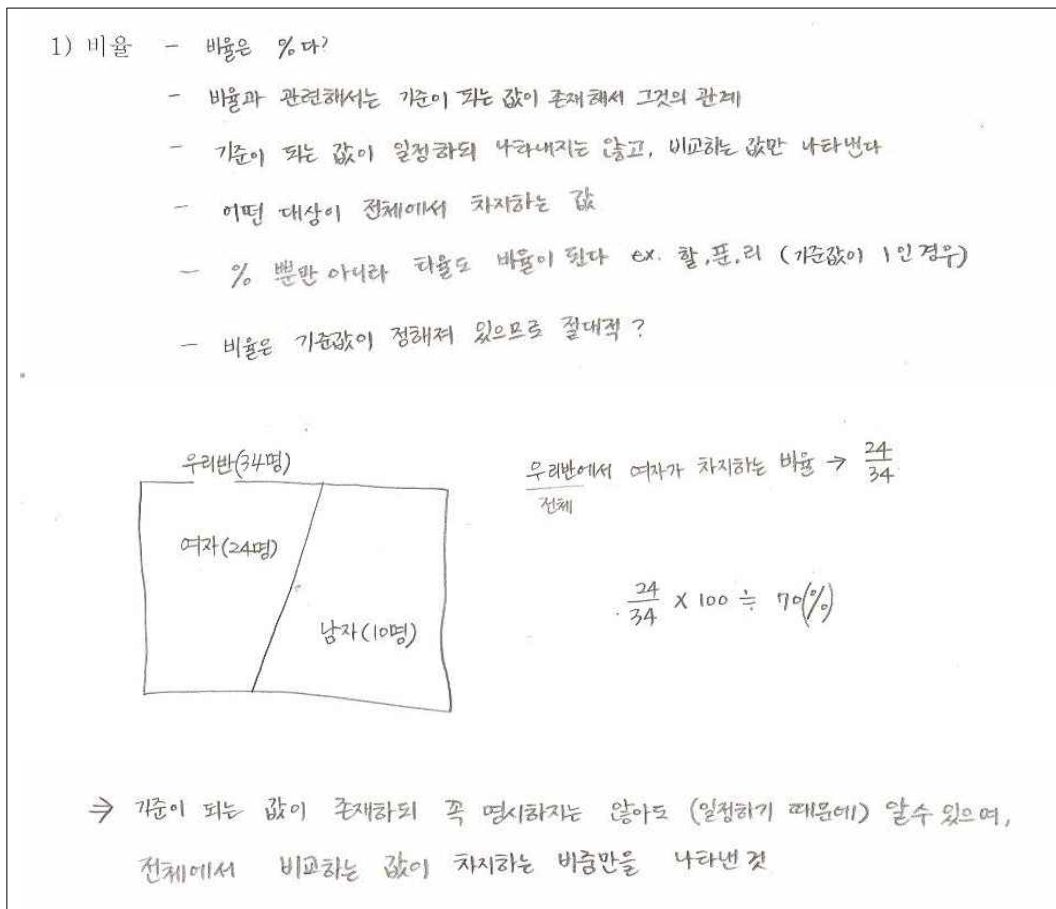 1) 비율 - 비율은 %다?
- 비율과 관련해서는 기준이 되는 값이 존재해서 그것의 관계
- 기준이 되는 값이 일정하되 나타내지는 않고, 비교하는 값만 나타낸다
- 어떤 대상이 전체에서 차지하는 값
- % 뿐만 아니라 타율도 비율이 된다 ex. 할,푼,리 (기준값이 1인 경우)
- 비율은 기준값이 정해져 있으므로 절대적?
우리반(34명)
여자(24명)
남자(10명)
우리반에서 여자가 차지하는 비율 → 24/34
전체
24/34 × 100 ≒ 70(%)
⇒ 기준이 되는 값이 존재하되 꼭 명시하지는 않아도 (일정하기 때문에) 알수 있으며,
전체에서 비교하는 값이 차지하는 비중만을 나타낸 것